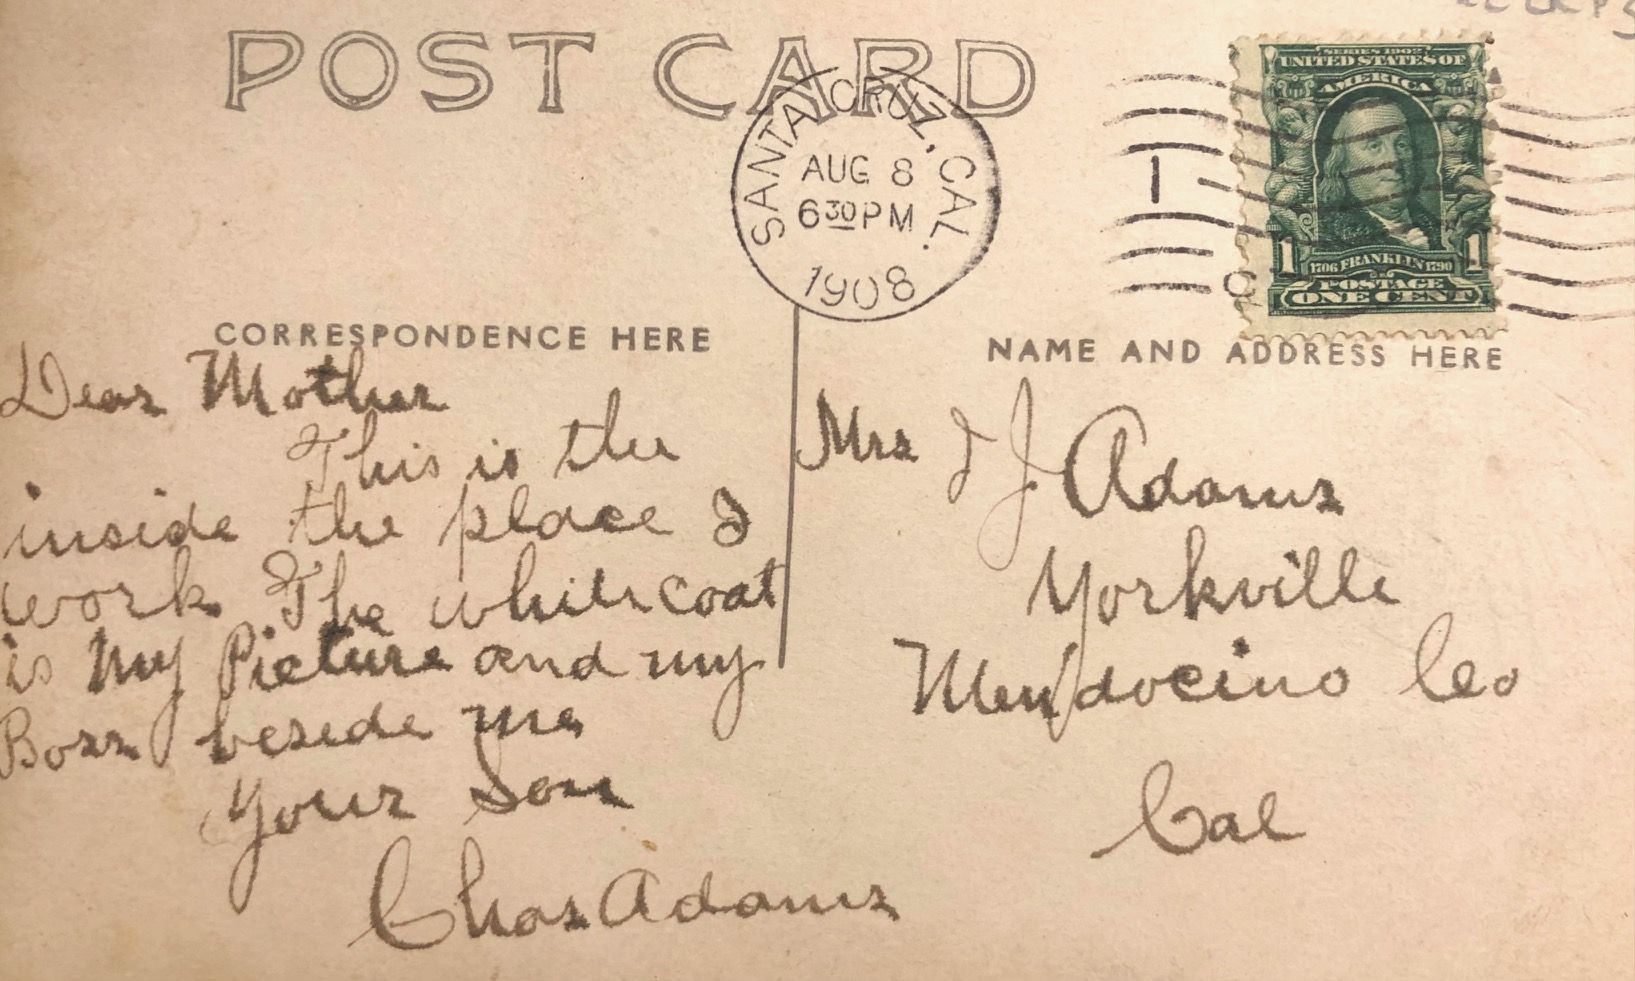 POST CARD
SANTA CRUZ, CAL.
AUG 8
6 30 PM
1908
1
SERIES 1902
UNITED STATES OF
AMERICA
1 1706 FRANKLIN 1790 1
POSTAGE
ONE CENT
CORRESPONDENCE HERE
Dear Mother
This is the
inside the place I
work The white coat
is My Picture and my
Boss beside me
Your Son
Chas Adams
NAME AND ADDRESS HERE
Mrs I J Adams
Yorkville
Mendocino Co
Cal